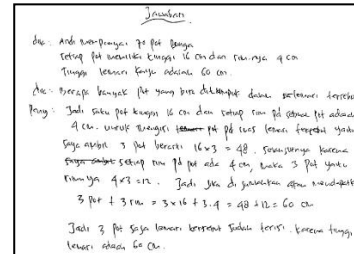 Jawaban
dik : Andi mempunyai 70 pot bunga
setiap pot memiliki tinggi 16 cm dan rimnya 4 cm
Tinggi lemari kayu adalah 60 cm.
dit : Berapa banyak pot yang bisa ditumpuk dalam lemari tersebut
Peny : Jadi satu pot tinggi 16 cm dan setiap rim pd semua pot adalah
4 cm. untuk mengisi pot pd luas lemari tersebut yaitu
saya ambil 3 pot berarti 16 x 3 = 48. selanjutnya karena
setiap rim pd pot ada 4 cm, maka 3 pot yaitu
rimnya 4 x 3 = 12. Jadi jika di jumlahkan akan mendapat
3 pot + 3 rim = 3 x 16 + 3.4 = 48 + 12 = 60 cm
Jadi 3 pot saja lemari tersebut sudah terisi. karena tinggi
lemari adalah 60 cm.